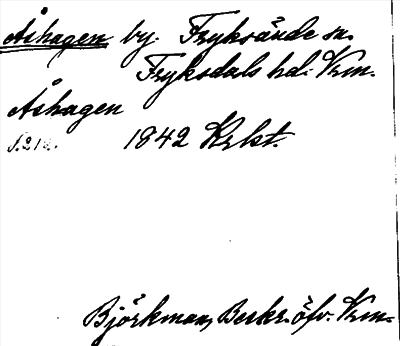 Åshagen by. Fryksände sn.
Fryksdals hd. Vrm.
Åshagen
s. 212. 1842 Krkt.
Björkman, Beskr. öfv. Vrm.